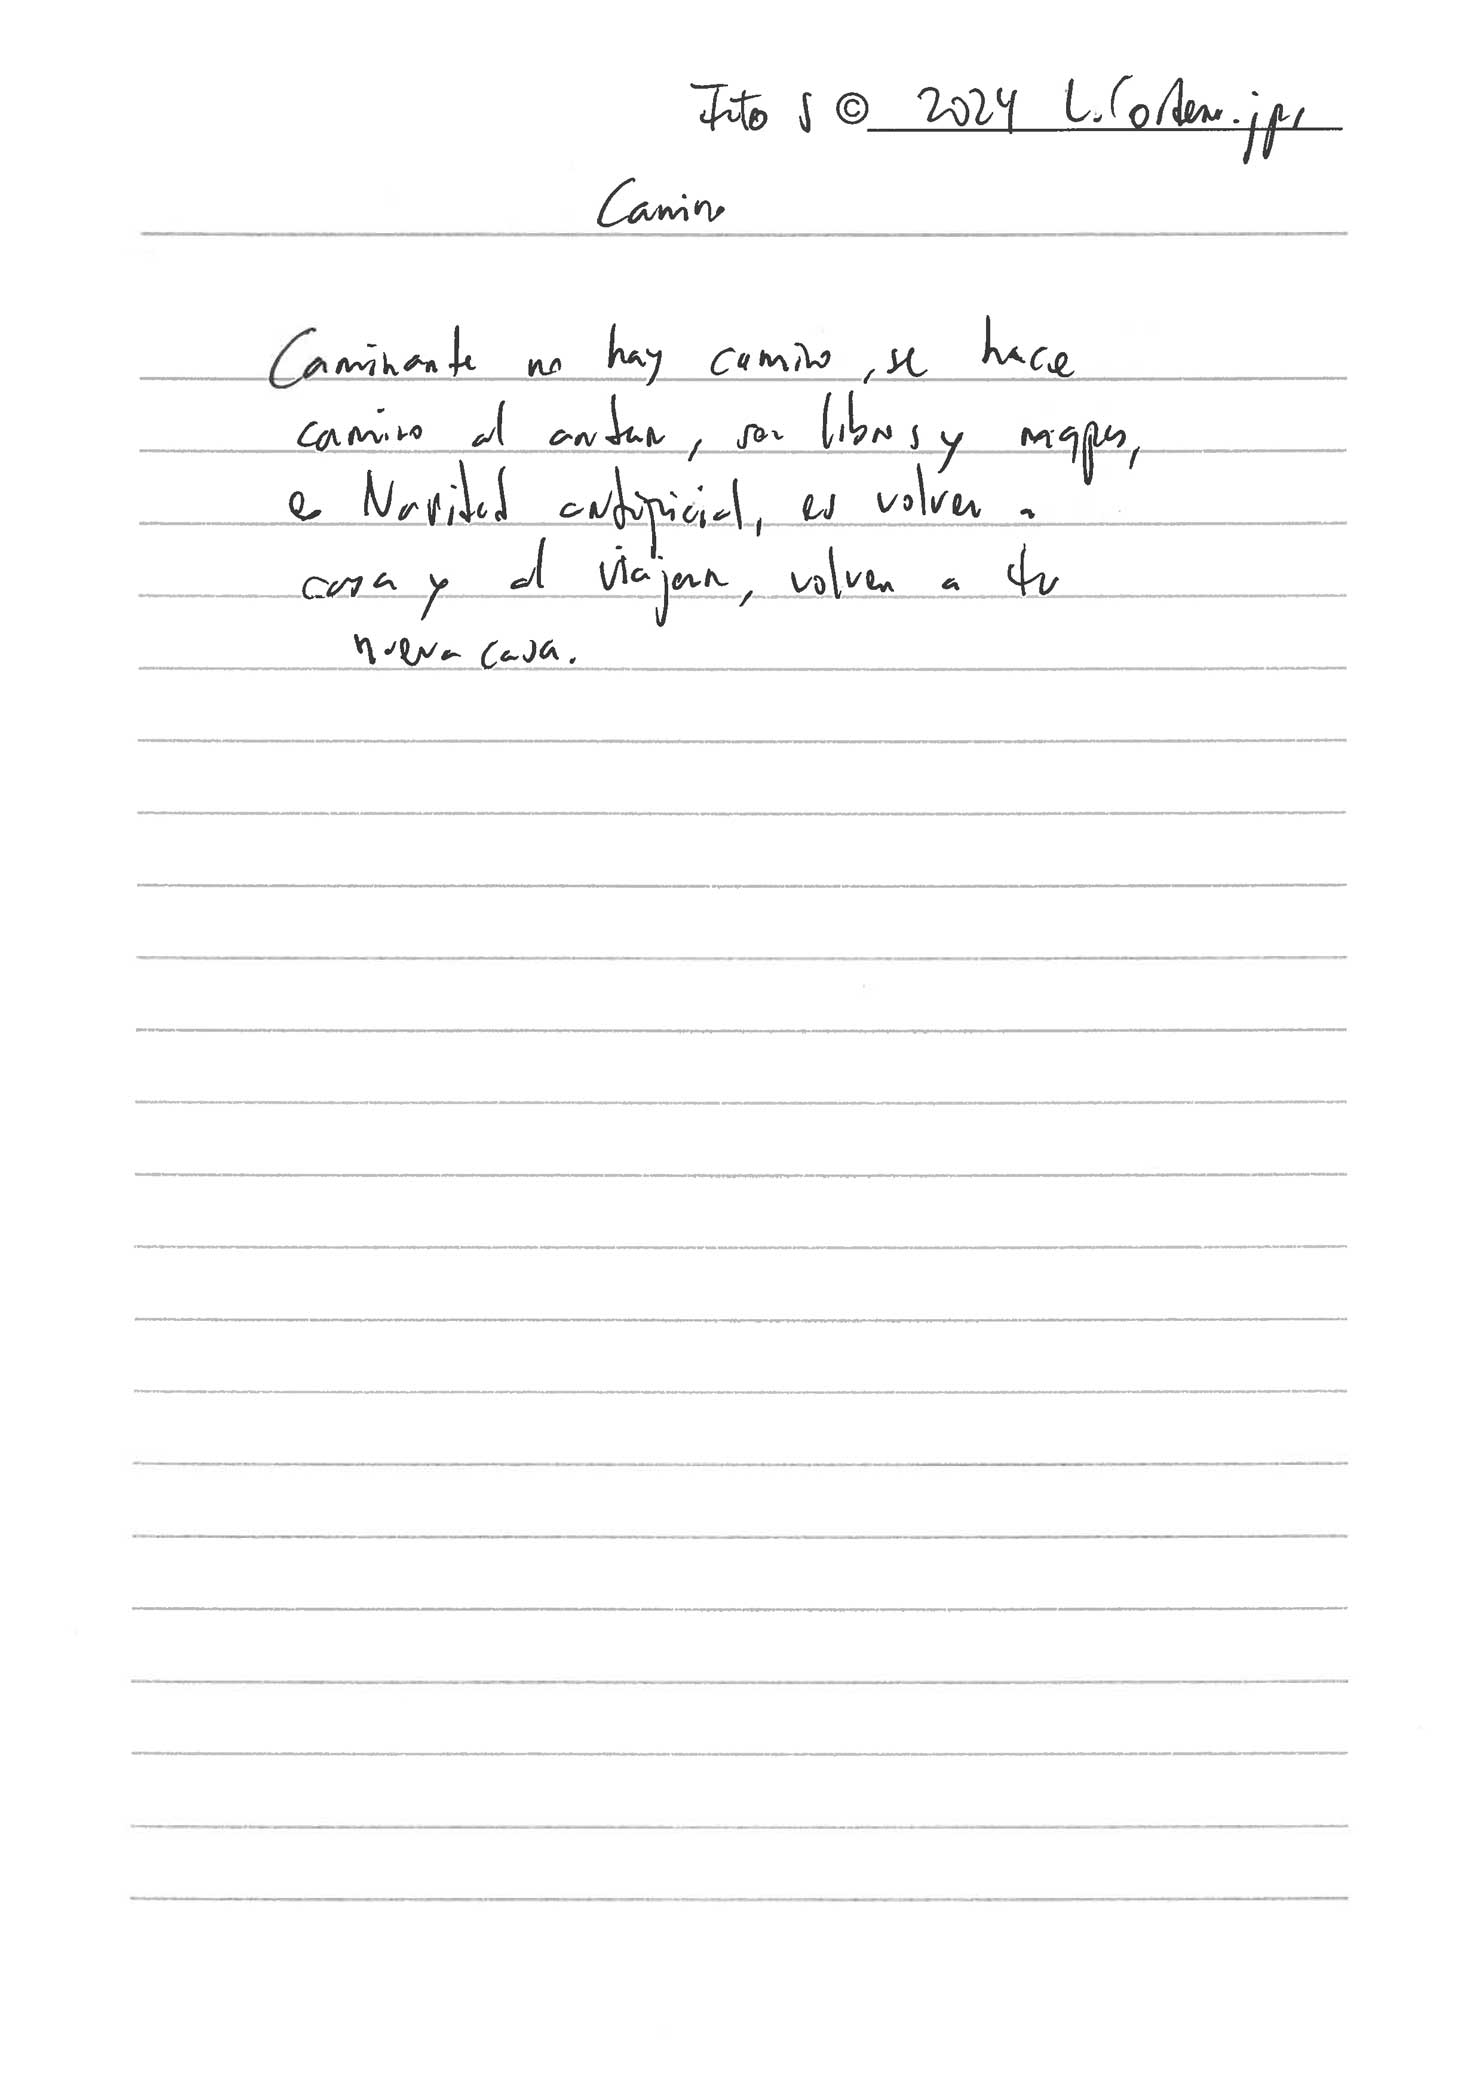 Fito S © 2024
Camino
Caminante no hay camino, se hace
camino al andar, son libros y mapas,
es Navidad artificial, es volver a
casa y al viajar, volver a tu
nueva casa.